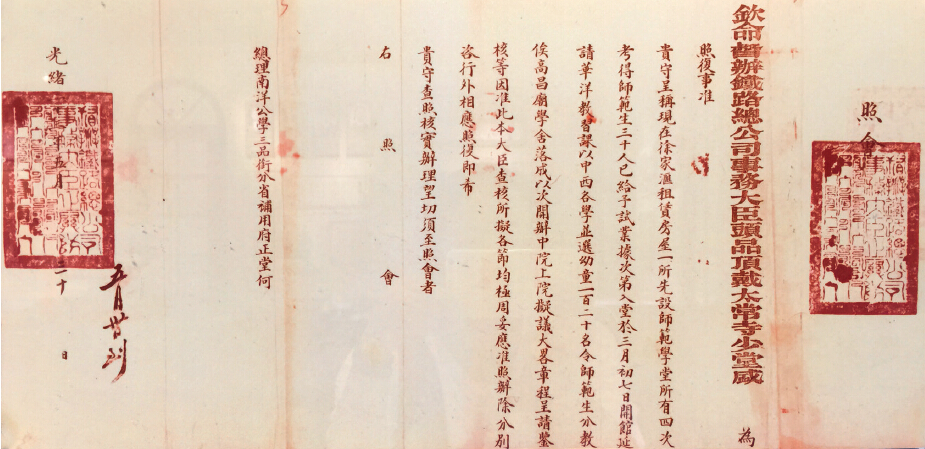 照會
欽命督辦鐵路總公司事務大臣頭品頂戴太常寺少堂盛 為
照復事准
貴守呈稱現在徐家滙租賃房屋一所先設師範學堂所有四次
考得師範生三十人已給予試業據次第入堂於三月初七日開館延
請華洋教習課以中西各學並選幼童一百二十名令師範生分教
俟高昌廟學舍落成以次開辦中院上院擬議大畧章程呈請鑒
核等因准此本大臣查核所擬各節均極周妥應准照辦除分別
咨行外相應照復即希
貴守查照核實辦理望切須至照會者
右 照 會
總理南洋公學三品銜分省補用府正堂何
光緒 年五月 二十 日
五月廿 到